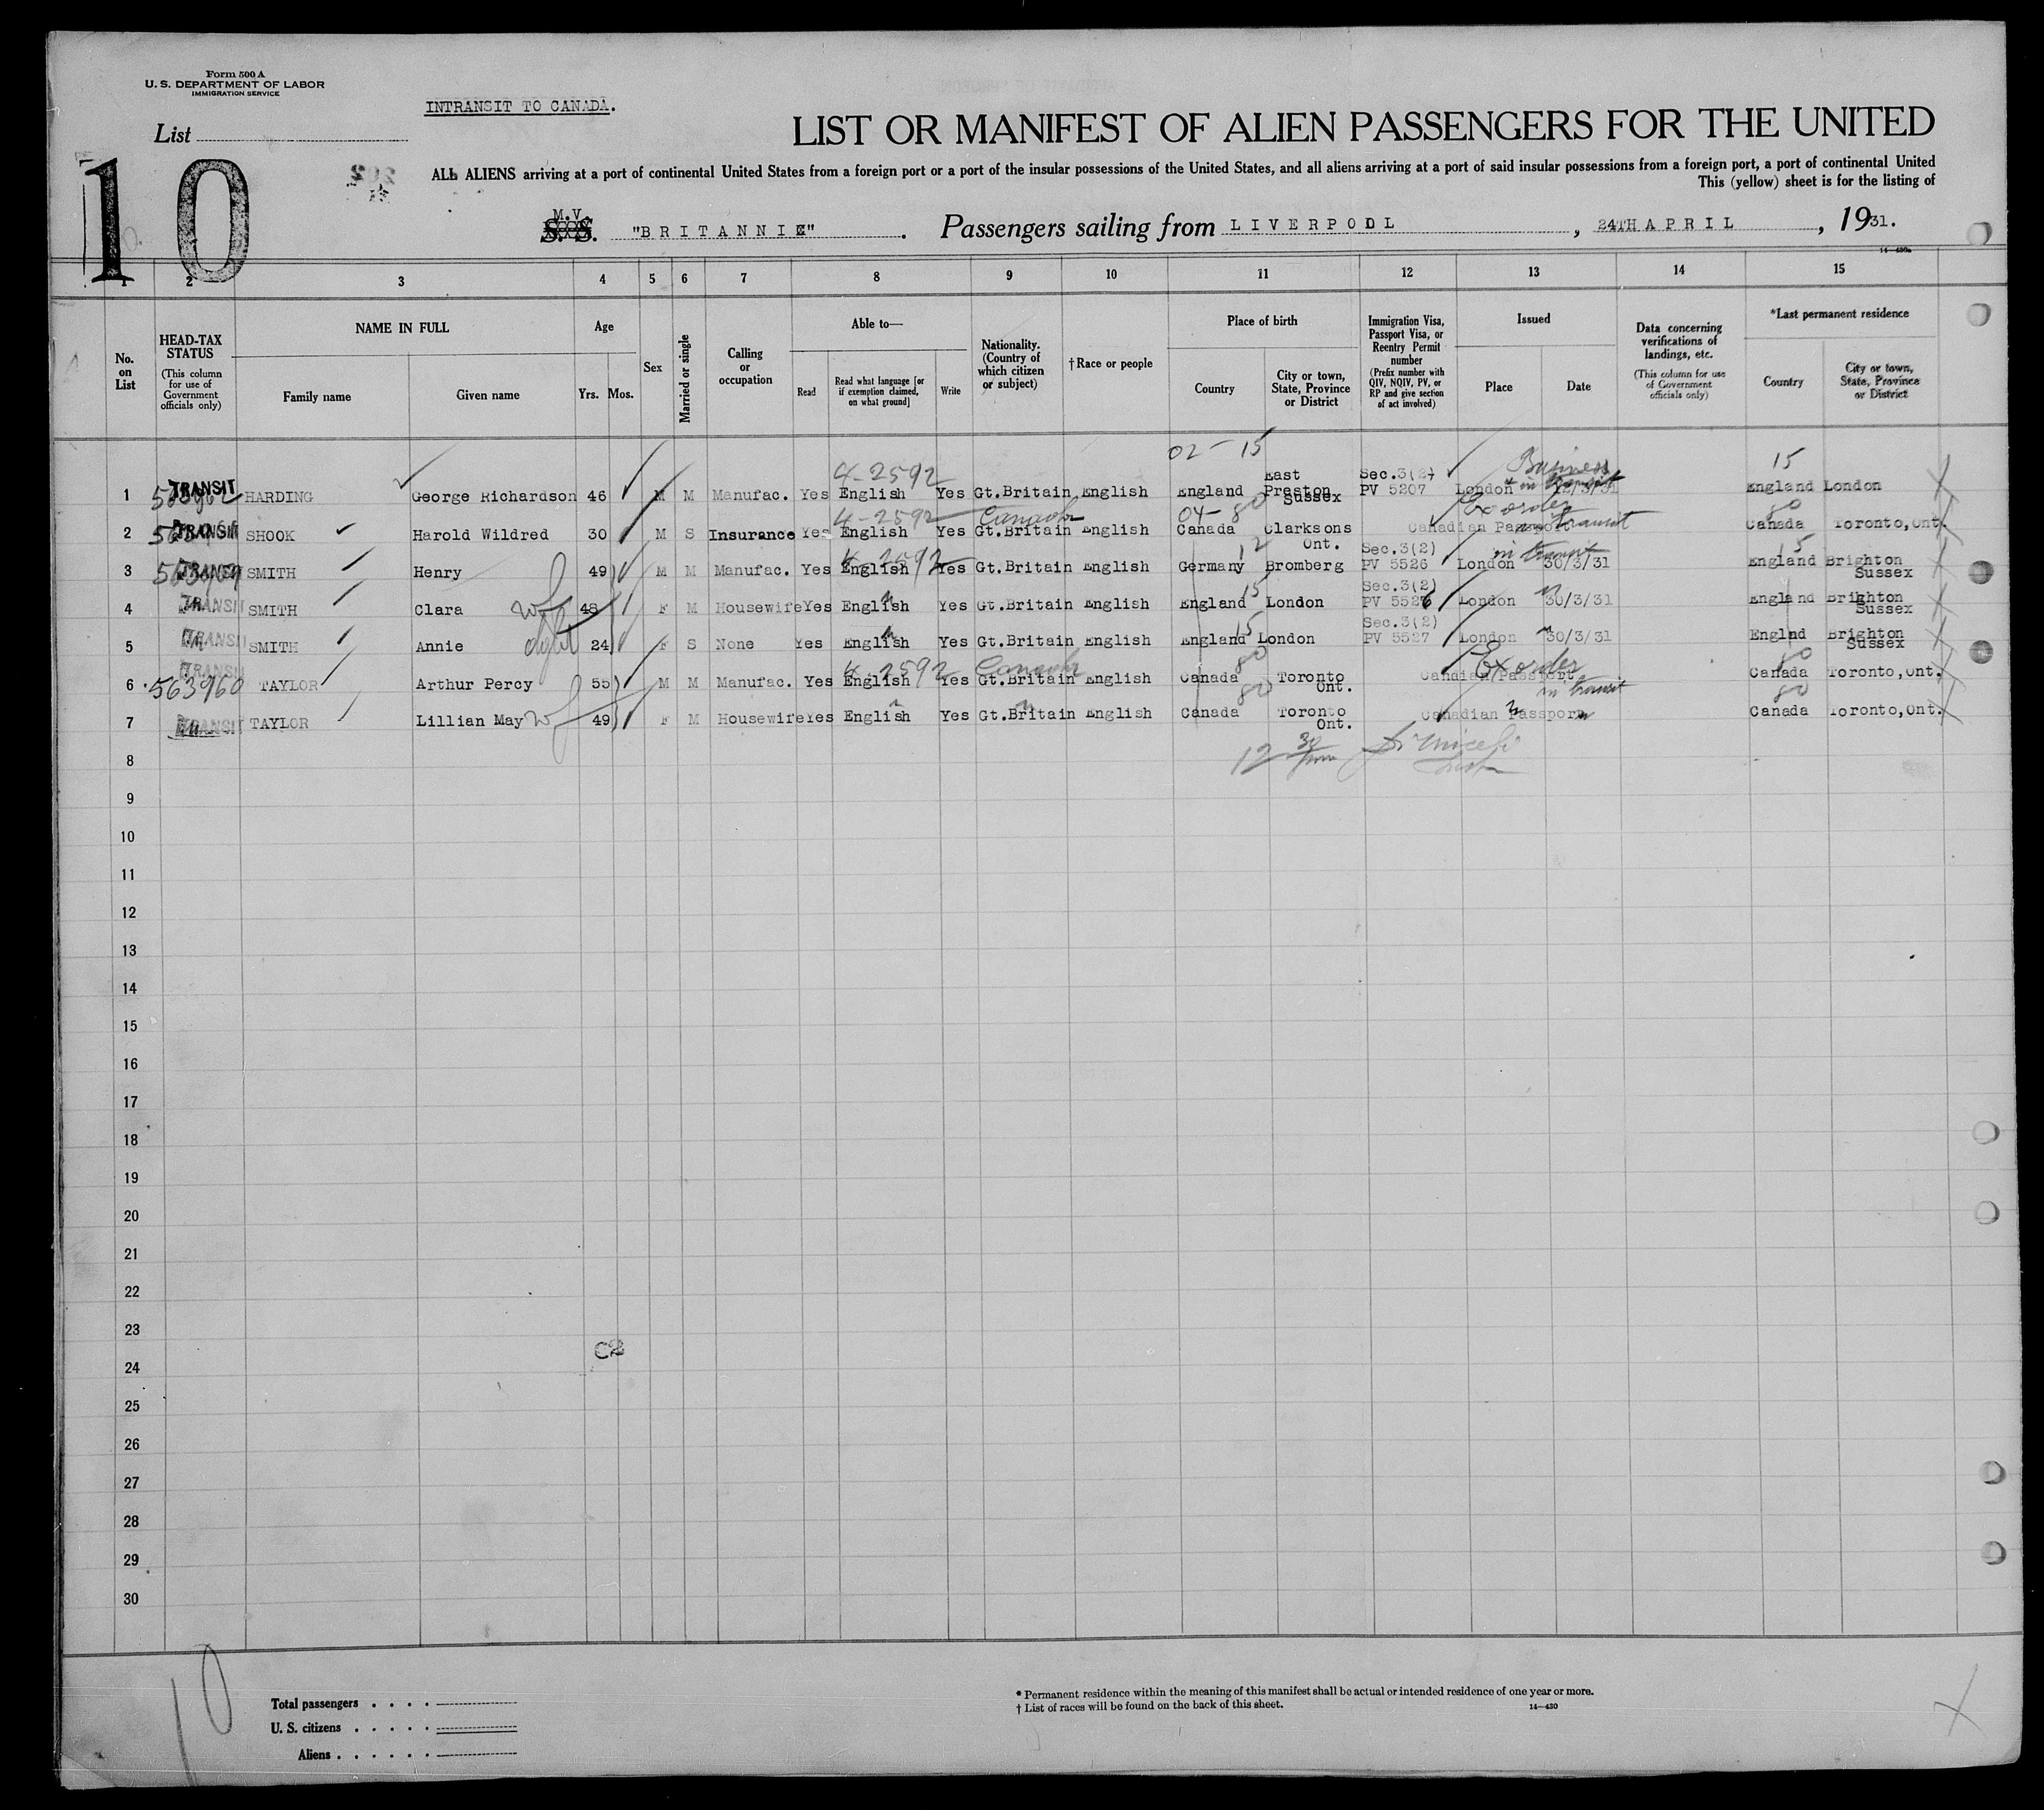 Form 500 A
U. S. DEPARTMENT OF LABOR
IMMIGRATION SERVICE
INTRANSIT TO CANADA.
List
10
LIST OR MANIFEST OF ALIEN PASSENGERS FOR THE UNITED
ALL ALIENS arriving at a port of continental United States from a foreign port or a port of the insular possessions of the United States, and all aliens arriving at a port of said insular possessions from a foreign port, a port of continental United
This (yellow) sheet is for the listing of
M.V.
S. S. "BRITANNIC". Passengers sailing from LIVERPOOL, 24TH APRIL, 1931.
14—430a
1 2 3 4 5 6 7 8 9 10 11 12 13 14 15
No. on List
HEAD-TAX STATUS (This column for use of Government officials only)
NAME IN FULL
Family name
Given name
Age
Yrs. Mos.
Sex
Married or single
Calling or occupation
Able to—
Read
Read what language [or if exemption claimed, on what ground]
Write
Nationality. (Country of which citizen or subject)
†Race or people
Place of birth
Country
City or town, State, Province or District
Immigration Visa, Passport Visa, or Reentry Permit number (Prefix number with QIV, NQIV, PV, or RP and give section of act involved)
Issued
Place
Date
Data concerning verifications of landings, etc. (This column for use of Government officials only)
*Last permanent residence
Country
City or town, State, Province or District
02-15
4-2592 East Sec.3(2) Business 15
1 TRANSIT HARDING George Richardson 46 M M Manufac. Yes English Yes Gt.Britain English England Preston Sussex PV 5207 London in transit England London
4-2592 Canada 04-80 Ex order 80
2 TRANSIT SHOOK Harold Wildred 30 M S Insurance Yes English Yes Gt.Britain English Canada Clarksons Ont. Canadian Passport in transit Canada Toronto,Ont.
4-2592 12 Sec.3(2) in transit 15
3 TRANSIT SMITH Henry 49 M M Manufac. Yes English Yes Gt.Britain English Germany Bromberg PV 5526 London 30/3/31 England Brighton Sussex
15 Sec.3(2)
4 TRANSIT SMITH Clara wf 48 F M Housewife Yes English Yes Gt.Britain English England London PV 5526 London 30/3/31 England Brighton Sussex
15 Sec.3(2)
5 TRANSIT SMITH Annie 24 F S None Yes English Yes Gt.Britain English England London PV 5527 London 30/3/31 Englnd Brighton Sussex
TRANSIT 4-2592 Canada 80 Ex order 80
6 563960 TAYLOR Arthur Percy 55 M M Manufac. Yes English Yes Gt.Britain English Canada Toronto Ont. Canadian Passport in transit Canada Toronto,Ont.
80 80
7 TRANSIT TAYLOR Lillian May wf 49 F M Housewife Yes English Yes Gt.Britain English Canada Toronto Ont. Canadian Passport Canada Toronto,Ont.
8 12 30 pm
9
10
11
12
13
14
15
16
17
18
19
20
21
22
23
24
25
26
27
28
29
30
10
Total passengers
U. S. citizens
Aliens
* Permanent residence within the meaning of this manifest shall be actual or intended residence of one year or more.
† List of races will be found on the back of this sheet.
14—430